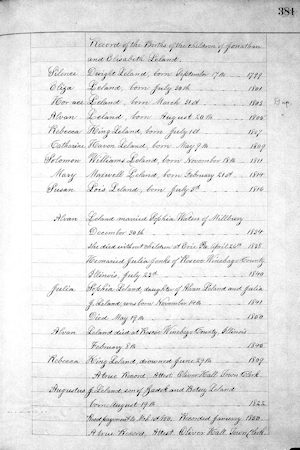 381
Record of the Births of the children of Jonathan
and Elisabeth Leland.
Silence Dwight Leland, born September 17th 1799
Eliza Leland, born July 30th 1801
Horace Leland, born March 31st 1803
Alvan Leland, born August 20th 1805
Rebecca King Leland, born July 1st 1807
Catharine Leland, born May 9th 1809
Solomon Williams Leland, born November 18th 1811
Mary Maxwell Leland, born February 21st 1814
Susan Lois Leland, born July 5th 1816
Alvan Leland married Sophia Waters of Millbury
December 30th 1834
She died without children at Erie Pa. April 24th 1838
He married Julia Jenks of Roscoe Winebago County,
Illinois, July 23d 1840
Julia Sophia Leland daughter of Alvan Leland and Julia
J. Leland, was born November 14th 1841
Died May 19th 1850
Alvan Leland died at Roscoe Winebago County, Illinois
February 8th 1846
Rebecca King Leland, drowned June 29th 1809
A true Record, Attest. Oliver Hall Town Clerk
Augustus J. Leland son of and Betsey Leland
born August 19th 1822
Recorded January 1850
A true Record, Attest. Oliver Hall, Town Clerk.